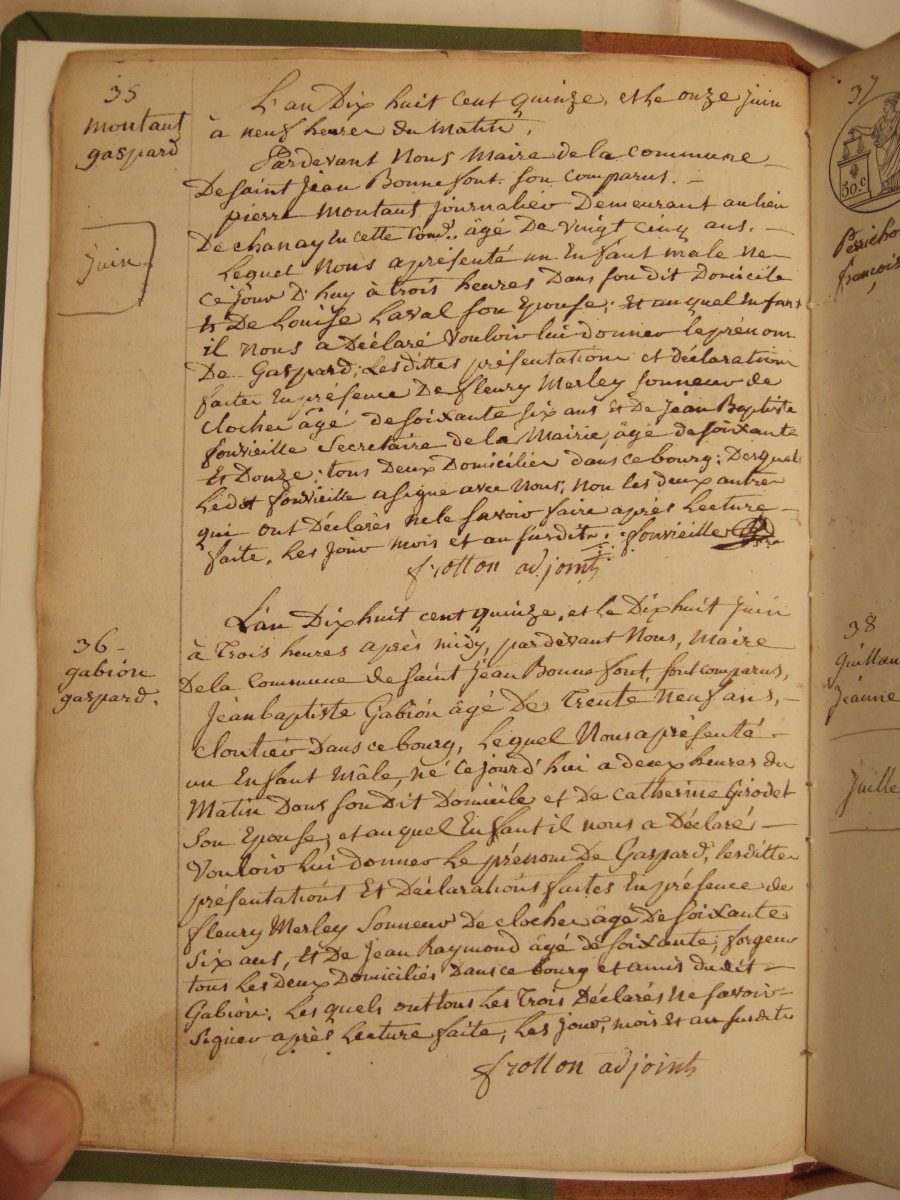 35
montant
gaspard
L'an Dix huit cent quinze, et le onze juin
à neuf heures du Matin,
Pardevant Nous Maire de la commune
De saint jean Bonnefont. son comparus.
pierre montant journalier Demeurant au lieu
De chanay lu cette Com^e. âgé De vingt cinq ans.
Lequel Nous a présenté un Enfant mâle né
ce jour D'huy à trois heures Dans son dit Domicile
Et De Louise Laval son Epouse; Et auquel Enfant
il nous a Déclaré vouloir lui donner le prénom
De Gaspard; Lesdittes présentation et déclaration
faites En présence De fleury Merley sonneur de
clocher âgé de soixante six ans Et De jean Baptiste
fonvieille Secretaire de la Mairie, âgé de soixante
Et Douze; tous Deux Domiciliés dans ce bourg; Desquels
Ledit fonvieille a signé avec Nous, Non les deux autres
qui ont Déclarés ne le savoir faire après Lecture
faite, Les jour mois et an susdits. fonvieille
frollon adjoint
juin
36
gabion
gaspard.
L'an Dix huit cent quinze, et le Dix huit juin
à Trois heures après midy, pardevant Nous, Maire
De la Commune de saint jean Bonnefont, sont comparus,
Jean baptiste Gabion âgé De Trente neuf ans,
Cloutier Dans ce bourg, Lequel Nous a présenté
un Enfant Mâle, né Ce jourd'hui a deux heures du
Matin Dans son Dit Domicile et De catherine Girodet
Son Epouse; et auquel Enfant il nous a Déclaré
Vouloir lui donner Le prénom De Gaspard, lesdittes
présentations Et Déclarations faites En présence de
fleury Merley Sonneur De clocher âgé De soixante
six ans, Et De Jean Raymond âgé de soixante, forgeur
tous Les Deux Domiciliés Dans ce bourg et amis dudit
Gabion; Lesquels ont tous Les Trois Déclarés Ne savoir
Signer après Lecture faite, Les jour, mois Et an susdits
frollon adjoint
37
30 c
françois
38
Jeanne
Juille